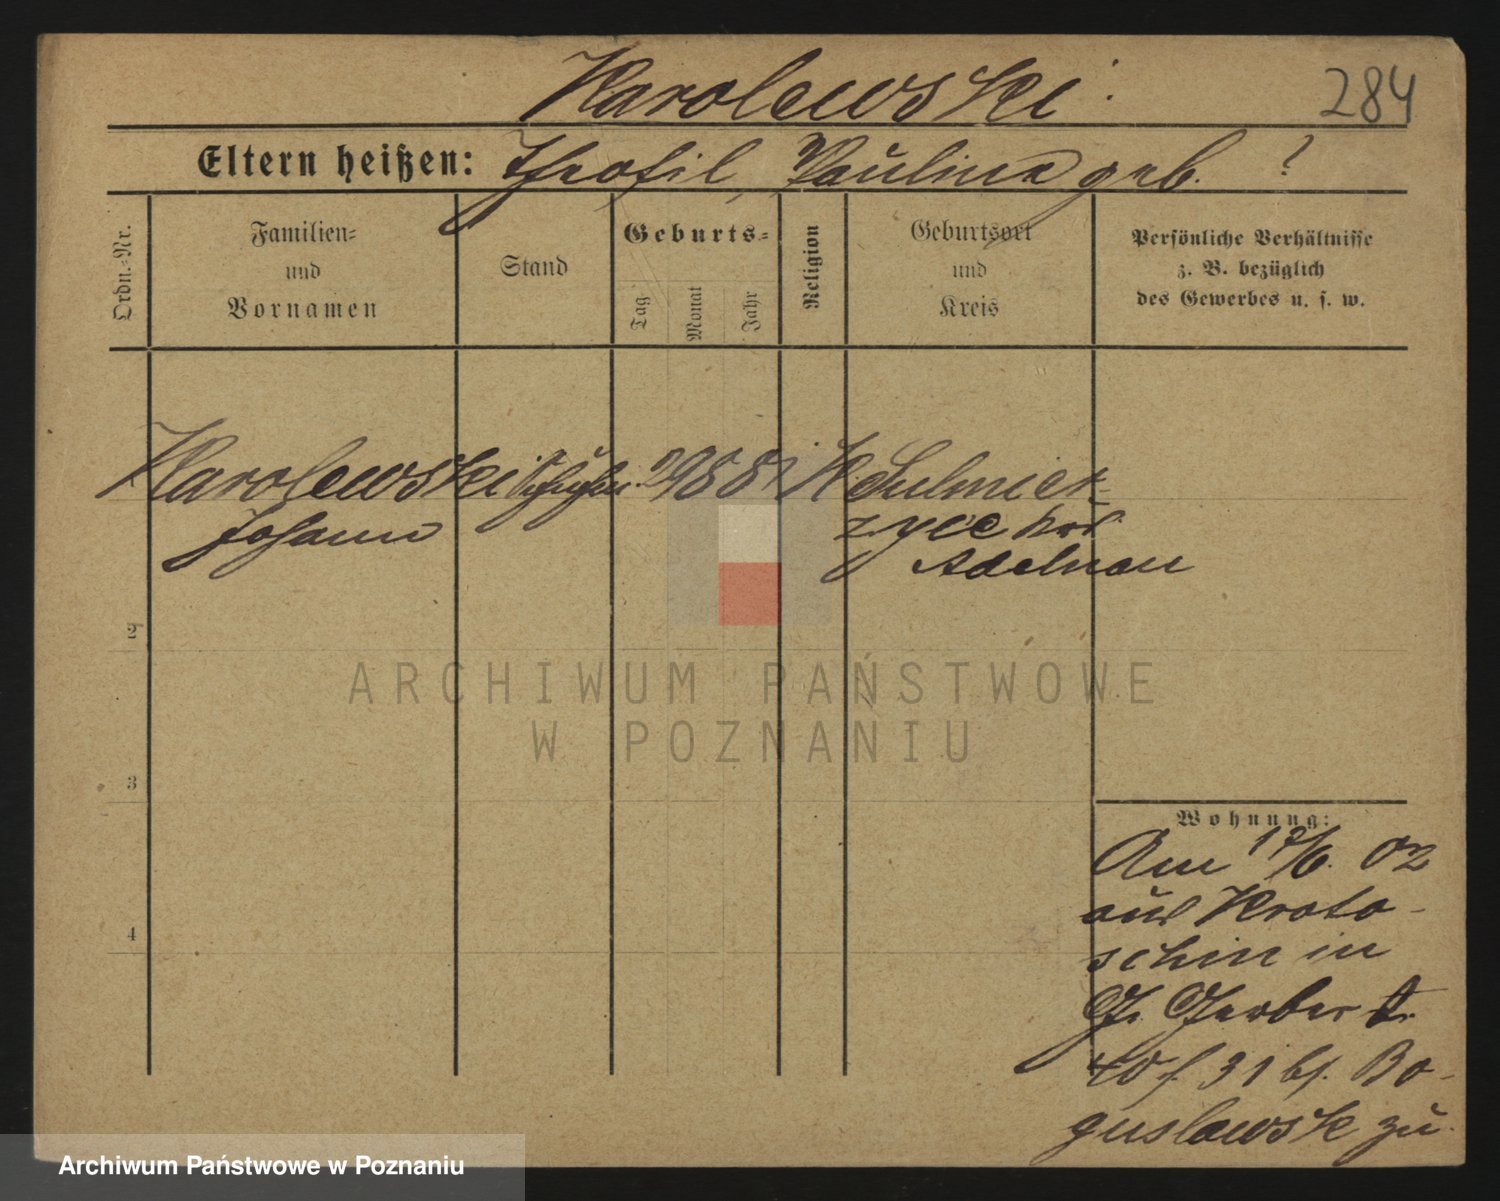 Karolewski.
284
Eltern heißen: Theofil, Paulina geb. ?
Ordn.-Nr.
Familien-
und
Vornamen
Stand
Geburts-
Tag
Monat
Jahr
Religion
Geburtsort
und
Kreis
Persönliche Verhältnisse
z. B. bezüglich
des Gewerbes u. s. w.
Karolewski
Johann
29 8 81
K
Sulmier-
zyce
Adelnau
2
3
4
ARCHIWUM PAŃSTWOWE
W POZNANIU
Wohnung:
Am /6. 02
aus Kroto-
schin in
Gr. Gerber
40 31 bs. Bo-
guslawsk zu.
Archiwum Państwowe w Poznaniu